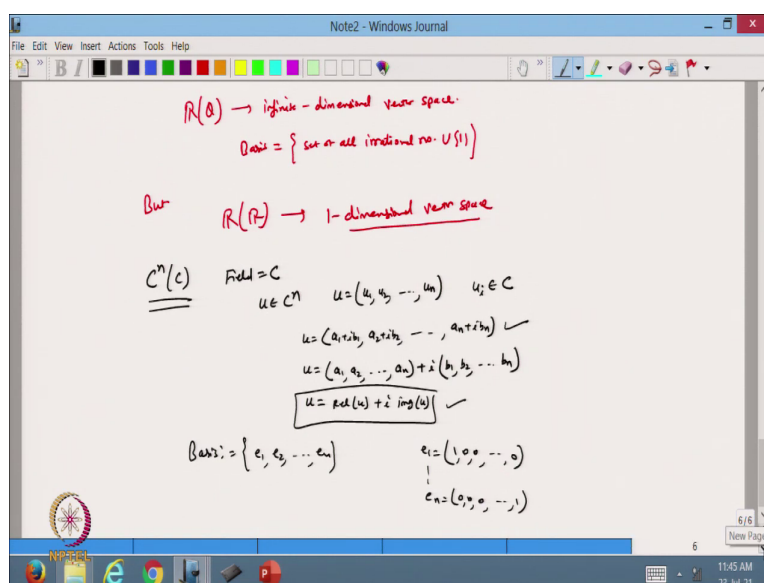 Note2 - Windows Journal
File Edit View Insert Actions Tools Help
B I
R(Q) → infinite-dimensional vector space.
Basis = { set of all irrational no. U {1} }
But R(R) → 1-dimensional vector space
Cⁿ(C) Field = C
u ∈ Cⁿ u = (u₁, u₂, ---, uₙ) uᵢ ∈ C
u = (a₁+ib₁, a₂+ib₂, - - -, aₙ+ibₙ) ✓
u = (a₁, a₂, ---, aₙ) + i (b₁, b₂, --- bₙ)
u = Rel(u) + i img(u) ✓
Basis: = { e₁, e₂, ---, eₙ } e₁ = (1,0,0, --, 0)
eₙ = (0,0,0, --, 1)
NPTEL
6/6
New Page
6
11:45 AM
27-Jul-21